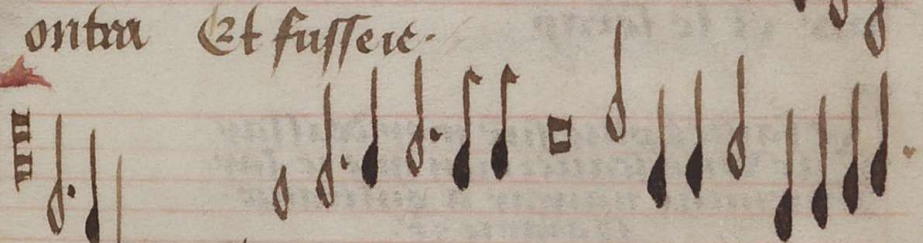 ontra Et fusseie.